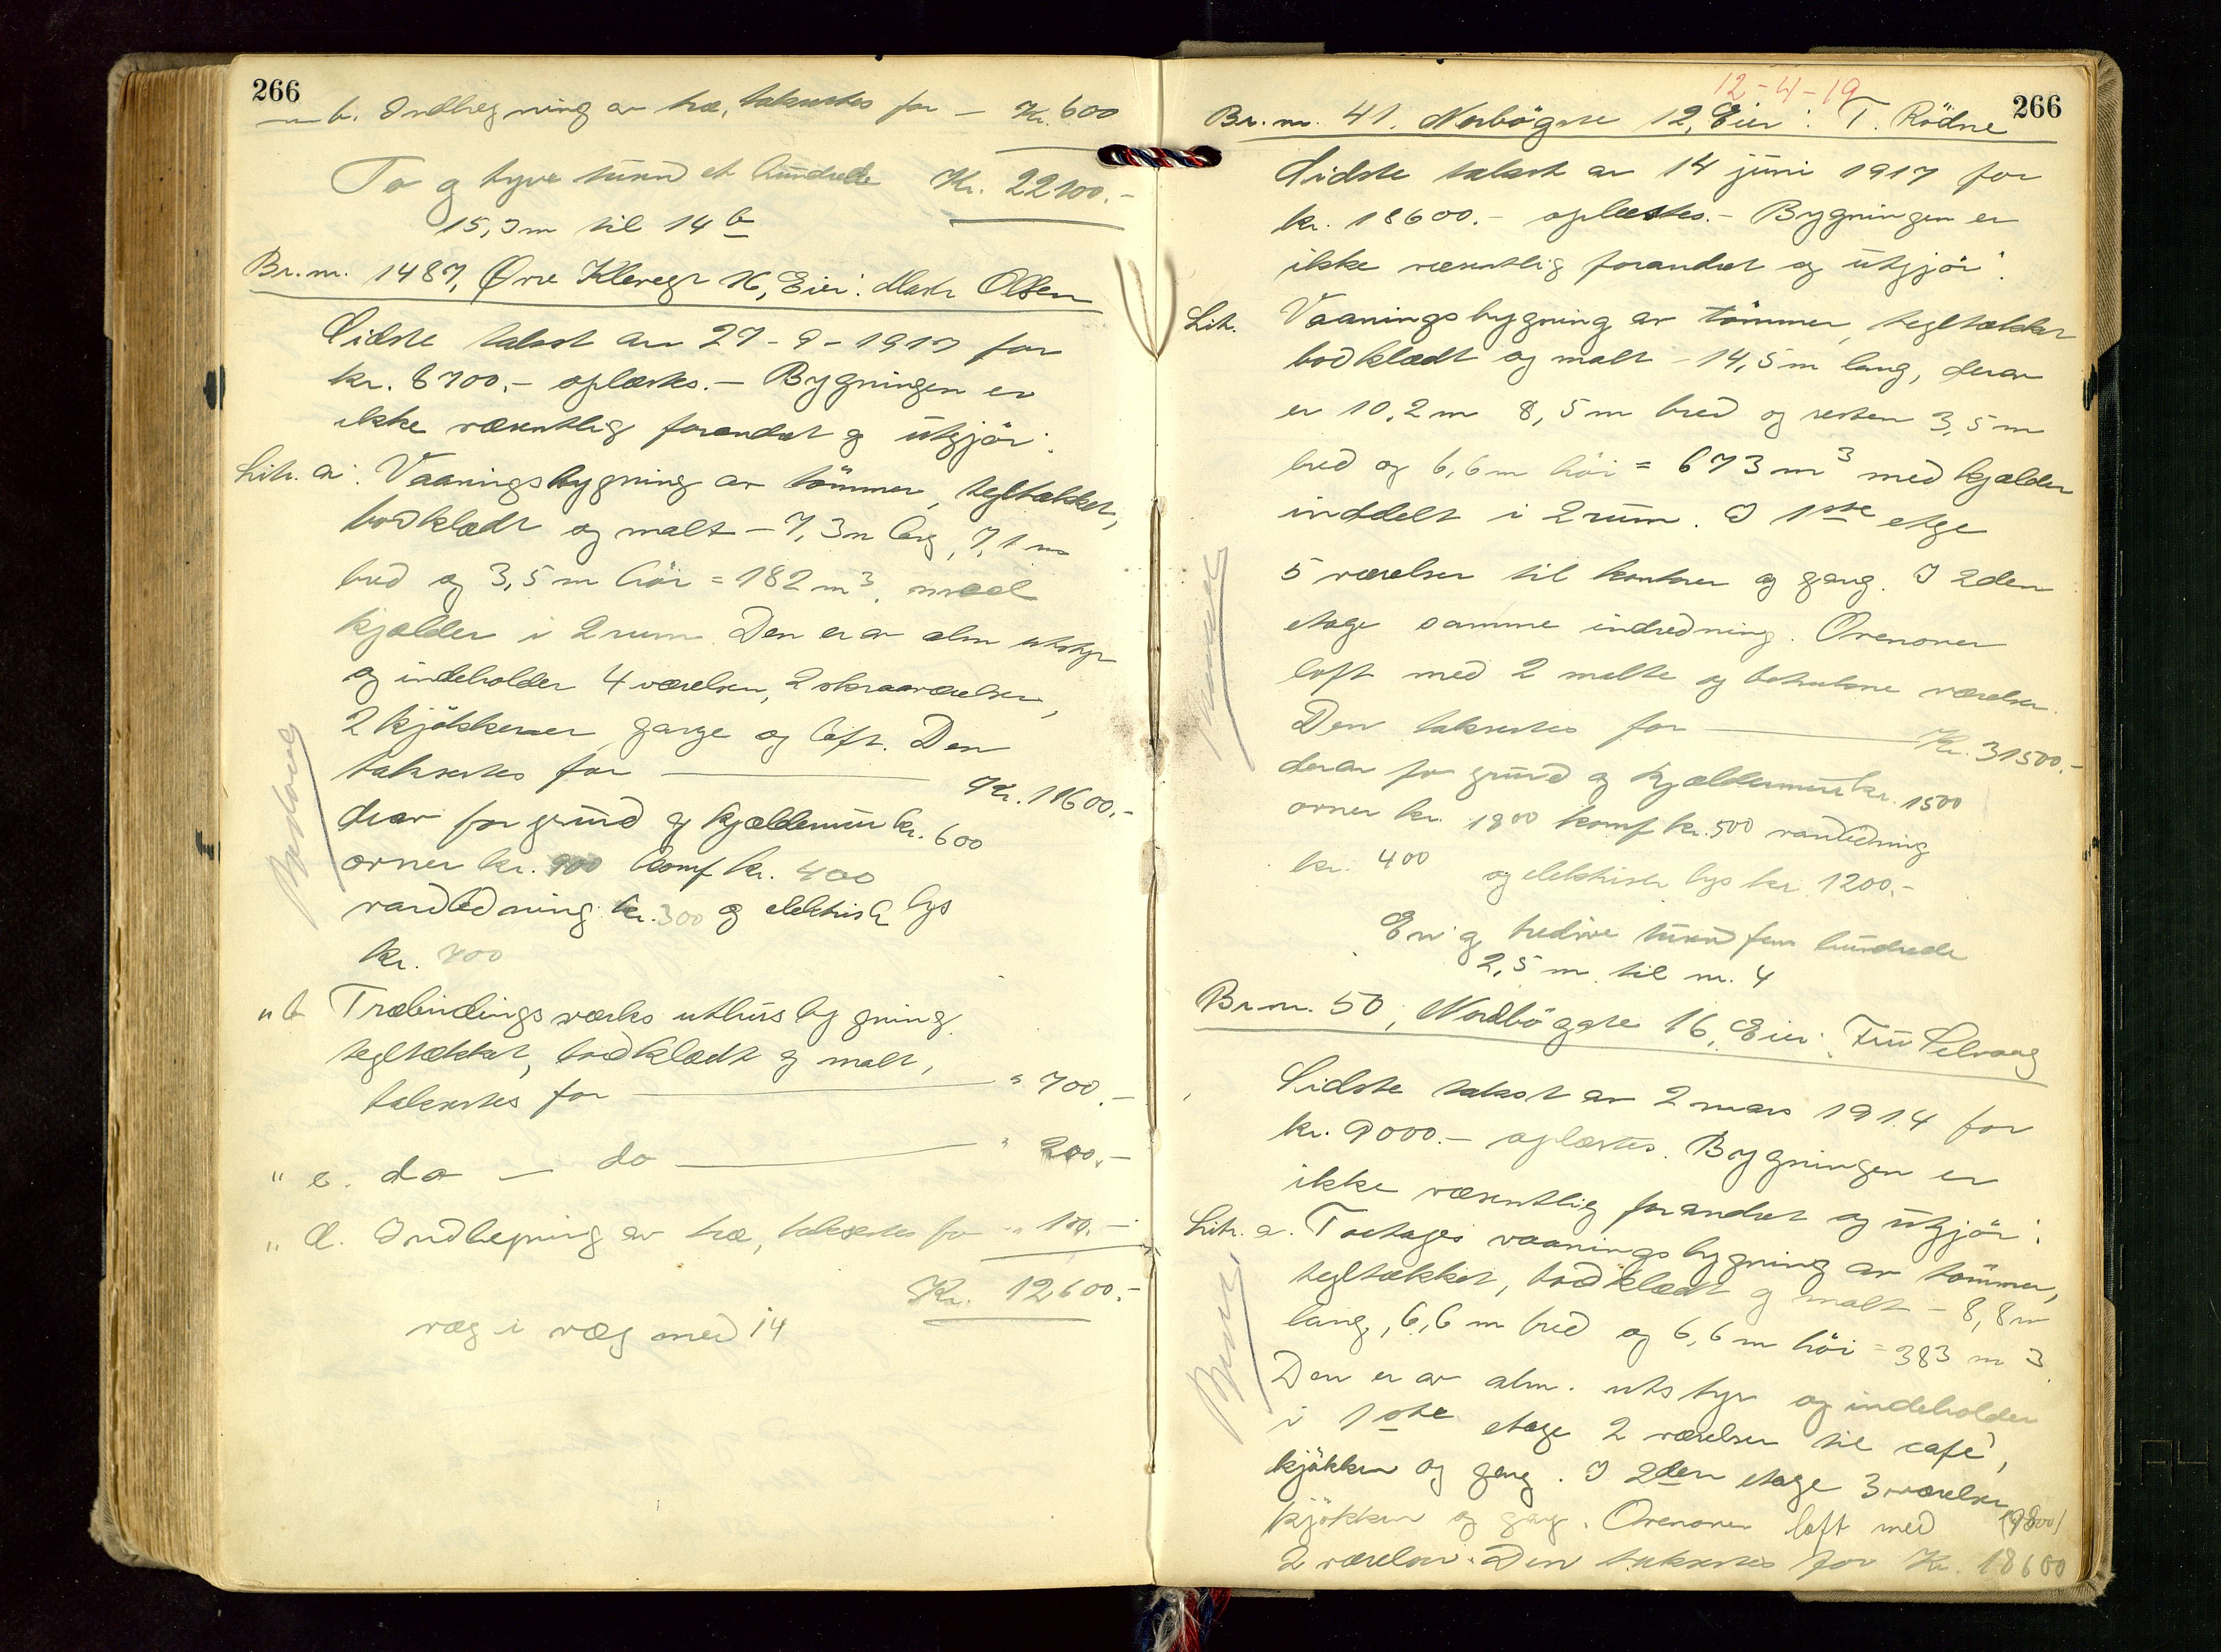 266
" b. Indhegning av træ, takseres for — Kr. 600
To og tyve tusind et hundrede Kr. 22100.-
15,3 m til 14 b
Br. nr. 1487, Øvre Klevegt 16, Eier: Olsen
Sidste takst av 27-9-1917 for
kr. 6700.- oplæstes. — Bygningen er
ikke væsentlig forandret og utgjör:
Litr. a: Vaaningsbygning av tömmer, tegltækket,
bordklædt og malt — 7,3 m lang, 7,1 m
bred og 3,5 m höi = 182 m³, med
kjælder i 2 rum. Den er av alm utstyr
og indeholder 4 værelser, 2 skraaværelser,
2 kjökkener gange og loft. Den
takseres for — Kr. 11600.-
derav for grund og kjældermur kr. 600
ovner kr. 900 komf kr. 400
vandledning kr. 300 og elektrisk lys
kr. 700
" b Træbindingsverks uthusbygning
tegltækket, bordklædt og malt,
takseres for — " 700.-
" c. do — do — " 200.-
" d. Indhegning av træ, takseres for " 100.-
Kr. 12600.-
væg i væg med 14
12-4-19
266
Br. nr. 41. Norbögate 12, Eier: T. Rödne
Sidste takst av 14 juni 1917 for
kr. 18600.- oplæstes. — Bygningen er
ikke væsentlig forandret og utgjör:
Litr. Vaaningsbygning av tömmer, tegltækket
bordklædt og malt — 14,5 m lang, derav
er 10,2 m 8,5 m bred og resten 3,5 m
bred og 6,6 m höi = 673 m³ med kjælder
inddelt i 2 rum. I 1ste etge
5 værelser til kontorer og gang. I 2den
etage samme indredning. Ovenover
loft med 2 malte og betrukne værelser.
Den takseres for — Kr. 31500.-
derav for grund og kjældermur kr. 1500
ovner kr. 1800 komf kr. 500 vandledning
kr. 400 og elektrisk lys kr. 1200.-
En og tredive tusind fem hundrede
2,5 m til nr. 4
Br. nr. 50, Nordbögate 16, Eier: Fru Selvaag
Sidste takst av 2 mars 1914 for
kr. 9000.- oplæstes. Bygningen er
ikke væsentlig forandret og utgjör:
Litr. a. Toetages vaaningsbygning av tömmer,
tegltækket, bordklædt og malt — 8,8 m
lang, 6,6 m bred og 6,6 m höi = 383 m³.
Den er av alm. utstyr og indeholder
i 1ste etage 2 værelser til café,
kjökken og gang. I 2den etage 3 værelser
kjökken og gang. Ovenover loft med (19800)
2 værelser. Den takseres for Kr. 18600